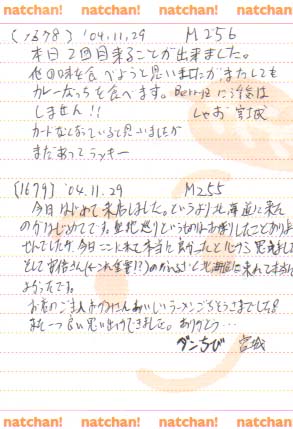 natchan! natchan! natchan! natchan!
(1678) '04.11.29 M256
本日2回目来ることが出来ました。
他の味を食べようと思いましたが、またしても
カレーだっちを食べます。Berryz に浮気は
しません!! しゃお 宮城
カードなくなっていると思いましたが
まだあってラッキー
(1679) '04.11.29 M255
今日はじめて来店しました。というより北海道に来た
のがはじめてです。
せんでしたが、今日ここに来て本当に良かったと心から
そして安倍さん(北海道に来れて本当に
よかったです。
お店のご主人 おいしいラーメンごちそうさまでした!
また一つ良い思い出ができました。ありがとう…
ダンちび 宮城
natchan! natchan! natchan! natchan!